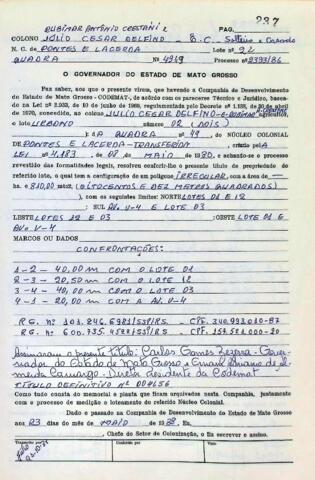 237
OUBIMAR ANTÔNIO CRESTANI E PAG.
COLONO JULIO CESAR DELFINO - B.C. - Solteiro e Casado
N. C. de PONTES E LACERDA Lote nº 92
QUADRA Nº 4969 Processo nº 2393/86
O GOVERNADOR DO ESTADO DE MATO GROSSO
Faz saber, aos que o presente virem, que havendo a Companhia de Desenvolvimento
do Estado de Mato Grosso - CODEMAT-, de acordo com os pareceres Técnico e Jurídico, basea-
do na Lei nº 2.933, de 10 de junho de 1969, regulamentada pelo Decreto nº 1.138, de 20 de abril
de 1970, concedido, ao colono JULIO CESAR DELFINO agricultor,
o lote URBANO 02 (DOIS)
da QUADRA nº 49, DO NÚCLEO COLONIAL
DE PONTES E LACERDA-TRANSFERIDA, criado pela
LEI nº 4.183, de 08 de MAIO de 1980, e achando-se o processo
revestido das formalidades legais, resolveu conferir-lhe o presente título de propriedade do
referido lote, o qual tem a configuração de um polígono IRREGULAR, com a área de —
ha e 810,00 mts2. (OITOCENTOS E DEZ METROS QUADRADOS)
), com os seguintes limites: NORTE LOTES 01 E 12
; SUL AV. V-4 E LOTE 03
LESTE LOTES 12 E 03 ; OESTE LOTE 01 E
AV. V-4
MARCOS OU DADOS
CONFRONTAÇÕES:
1-2 - 40,00 m COM O LOTE 01
2-3 - 20,50 m COM O LOTE 12
3-4 - 40,00 m COM O LOTE 03
4-1 - 20,00 m COM A AV. V-4
Assinaram o presente título: Carlos Gomes Bezerra - Gover-
nador do Estado de Mato Grosso e
Camargo - Diretor Presidente da Codemat
TÍTULO DEFINITIVO Nº 004656
Como tudo consta do memorial e planta que ficam arquivados nesta Companhia, juntamente
com o processo de medição e loteamento do referido Núcleo Colonial.
Dado e passado na Companhia de Desenvolvimento do Estado de Mato Grosso
aos 23 dias do mês de MAIO de 1988. Eu,
, Chefe do Setor de Colonização, o fiz escrever e assino.